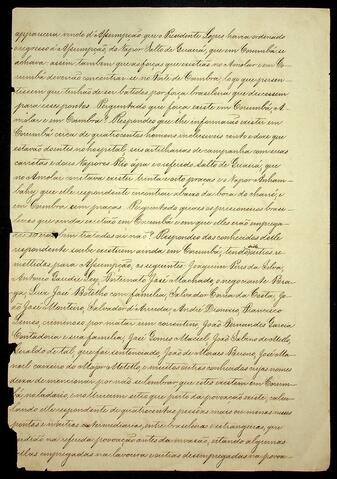 apparecera vindo d'Assumpção, que o Presidente Lopes havia ordenado
o regresso a Assumpção, do Vapor Salto de Guairá, que em Corumbá se
achava assim tambem que as forças que existião no Amolar e em Co-
rumbá deverião concentrar-se no Forte de Coimbra, logo que persen-
tissem que tenhão de ser batidos por força brasileira que descessem
para esses pontos. Perguntado que força existe em Corumbá, A-
molar e em Coimbra? Respondeo que lhe informarão existir em
Corumbá cerca de quatrocentos homens inclusivel cento e dous que
estavão doentes no hospital, seis artilharias de campanha com suas
carretas e dous Vapores Rio Apa e o referido Salto de Guairá, que
no Amolar constava existir trinta e oito praças e o Vapor Anham-
bahy que elle respondente encontrou abaixo da boca do chané, e
em Coimbra sem praças. Perguntado quaes os prisioneiros brasi-
leiros que ainda existião em Corumbá e em que elles erão emprega-
dos e se erão bem tratados ou não? Respondeo dos conhecidos delle
respondente sabe existirem ainda em Corumbá, tendo outros re-
mettidos para Assumpção, os seguintes Joaquim Pires da Silva,
Antonio José Machado o negociante Bra-
ga, Luiz José Botelho com familia, Salvador Corrêa da Costa, Jo-
ão José Monteiro, Salvador d'Arruda, André Francisco
Lemes, criminoso por matar um correntino, João Fernandes Garcia
Contadoria e sua familia, José Gomes Maciel, João Sabino de Mello,
Geraldo de tal, que foi sentenciado João de Moraes Bueno, José Ma-
noel carneiro do Major Metello, e muitos outros conhecidos cujos nomes
deixa de mencionar por não se lembrar que estes existem em Corum-
bá, no ladario, e no Urucum sitio que perto da povoação existe, calcu-
lando elle respondente de quatrocentas pessoas mais ou menos nesses
pontos e n'outros intermediarios, entre brasileiros e estrangeiros, que
residião na referida povoação antes da invasão, estando algumas
d'ellas empregadas na lavoura e outras desempregadas na povoa-